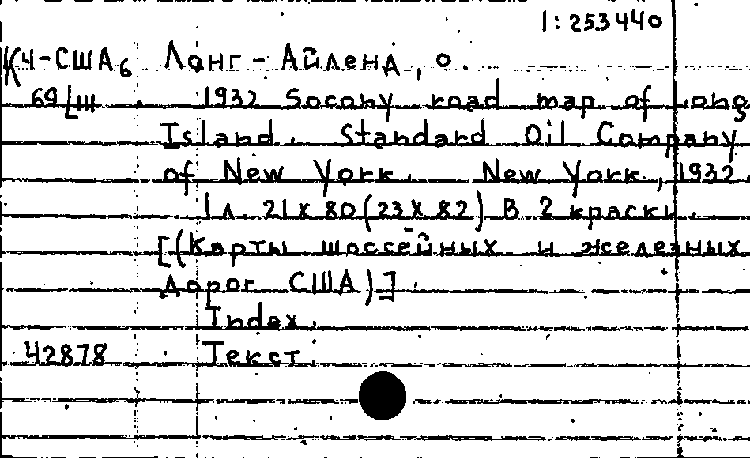 1:253440
К4-США6 Лонг-Айленд, о.
69/III 1932 Socony road map of Long
Island. Standard Oil Company
of New York. New York, 1932.
1 л. 21 х 80 (23 х 82) В 2 краски.
[(Карты шоссейных и железных
дорог США)].
Index.
42878 Текст.